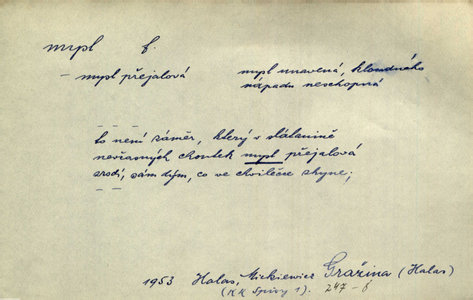 mysl f.
– mysl přejalová mysl unavená, kloudného
nápadu neschopná
to není záměr, který v slátanině
nevčasných choutek mysl přejalová
zrodí, sám dým, co ve chvilčičce zhyne;
1953 Halas, Mickiewicz Gražina (Halas)
(KK Spisy 1). 247-8